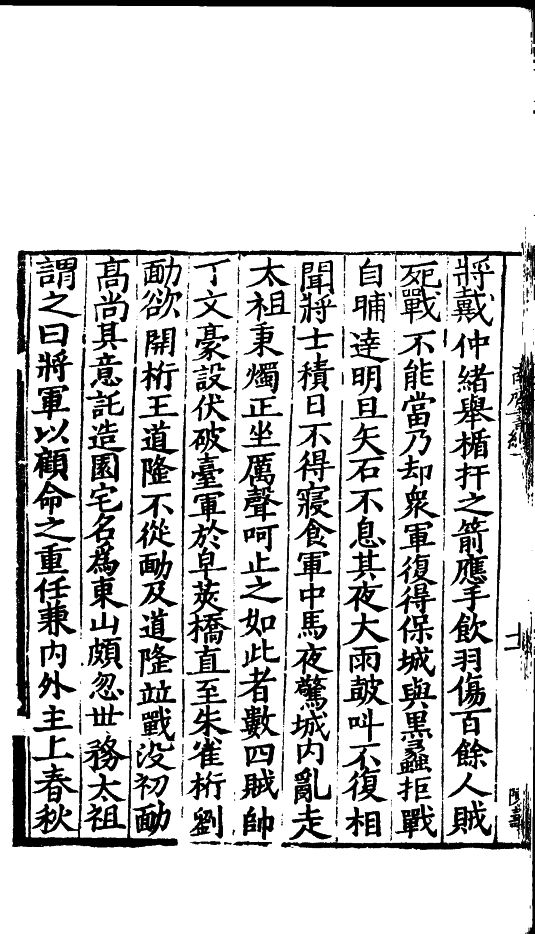 將戴仲緒舉楯扞之箭應手飲羽傷百餘人賊
死戰不能當乃却衆軍復得保城與黑蠡拒戰
自晡達明旦矢石不息其夜大雨皷叫不復相
聞將士積日不得寢食軍中馬夜驚城內亂走
太祖秉燭正坐厲聲呵止之如此者數四賊帥
丁文豪設伏破臺軍於皁莢橋直至朱雀桁劉
勔欲開桁王道隆不從勔及道隆竝戰没初勔
高尚其意託造園宅名爲東山頗忽世務太祖
謂之曰將軍以顧命之重任兼內外主上春秋